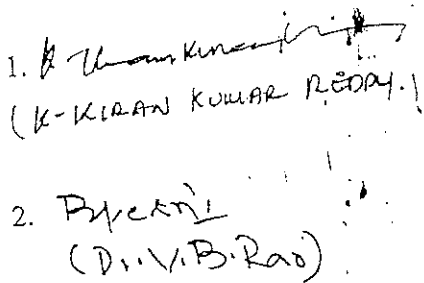 1.
(K-KIRAN KUMAR REDDY.)
2.
(Dr. V.B.Rao)